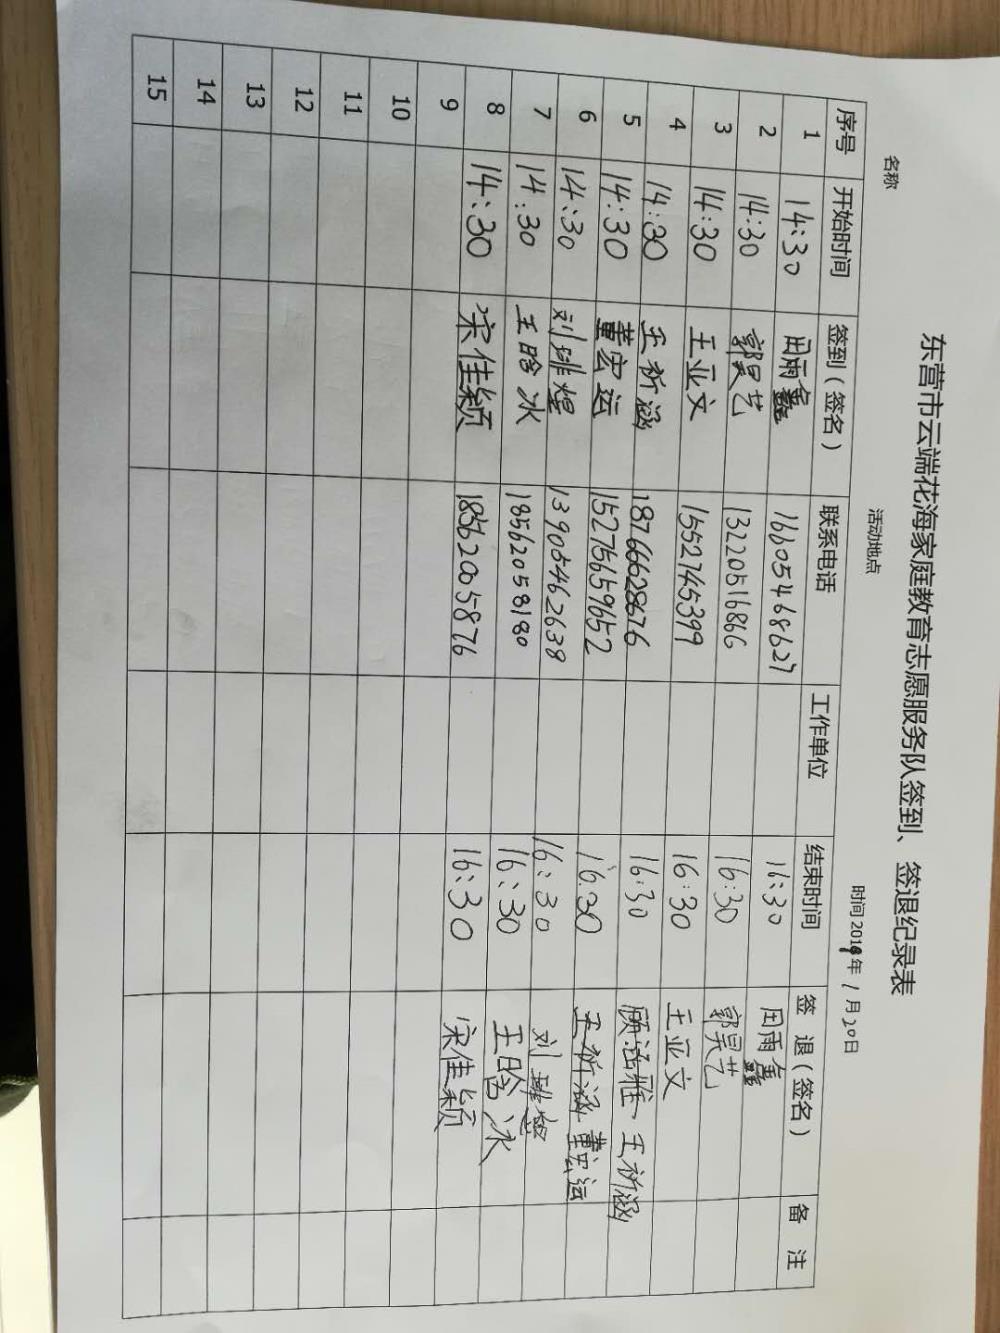 东营市云端花海家庭教育志愿服务队签到、签退纪录表
名称 活动地点 时间2019年1月20日
序号 开始时间 签到（签名） 联系电话 工作单位 结束时间 签 退（签名） 备 注
1 14:30 田雨鑫 16605468627 16:30 田雨鑫
2 14:30 郭昊艺 13220516866 16:30 郭昊艺
3 14:30 王亚文 15521745399 16:30 王亚文
4 14:30 王祈涵 18766628676 16:30 王祈涵
5 14:30 董宏运 15275659652 16:30 王祈涵 董宏运
6 14:30 刘琲煜 13905462638 16:30 刘琲煜
7 14:30 王晗冰 18562058180 16:30 王晗冰
8 14:30 宋佳颖 18562005876 16:30 宋佳颖
9
10
11
12
13
14
15